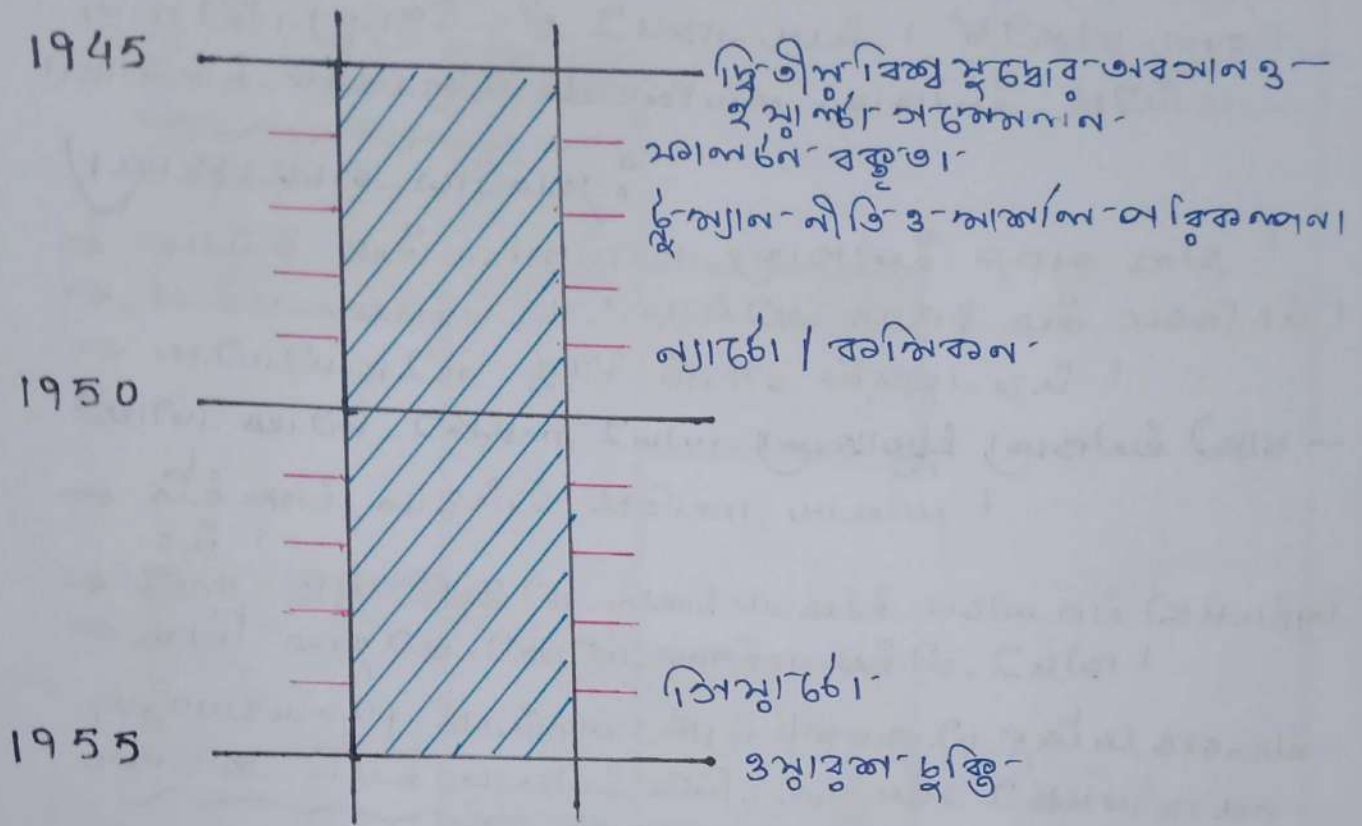 1945
দ্বিতীয় বিশ্ব যুদ্ধের অবসান ও
ইয়াল্টা সম্মেলন
ফালটন বক্তৃতা
ট্রুম্যান নীতি ও মার্শাল পরিকল্পনা
ন্যাটো / কমিকন
1950
সিয়াটো
1955
ওয়ারশ চুক্তি